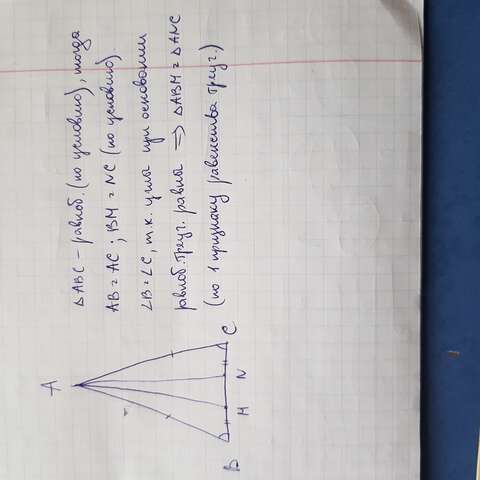 △ABC – равноб. (по условию), тогда
AB = AC ; BM = NC (по условию).
∠B = ∠C, т.к. углы при основании
равноб. треуг. равны ⇒ △ABM = △ANC
(по 1 признаку равенства треуг.)
A
B M N C